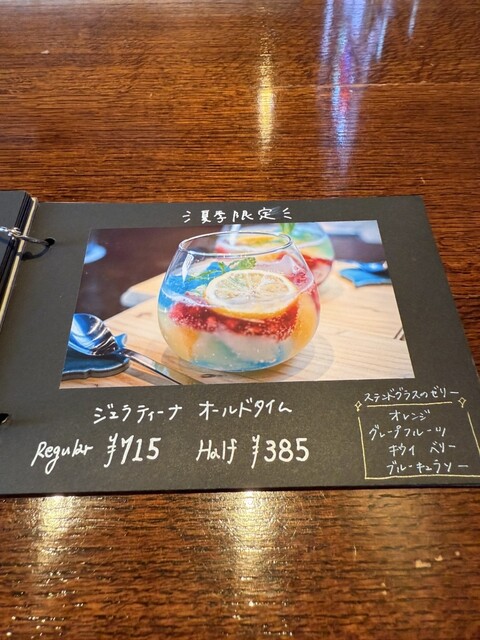 夏季限定
ジェラティーナ オールドタイム
Regular ¥715 Half ¥385
ステンドグラスのゼリー
オレンジ
グレープフルーツ
キウイ ベリー
ブルーキュラソー